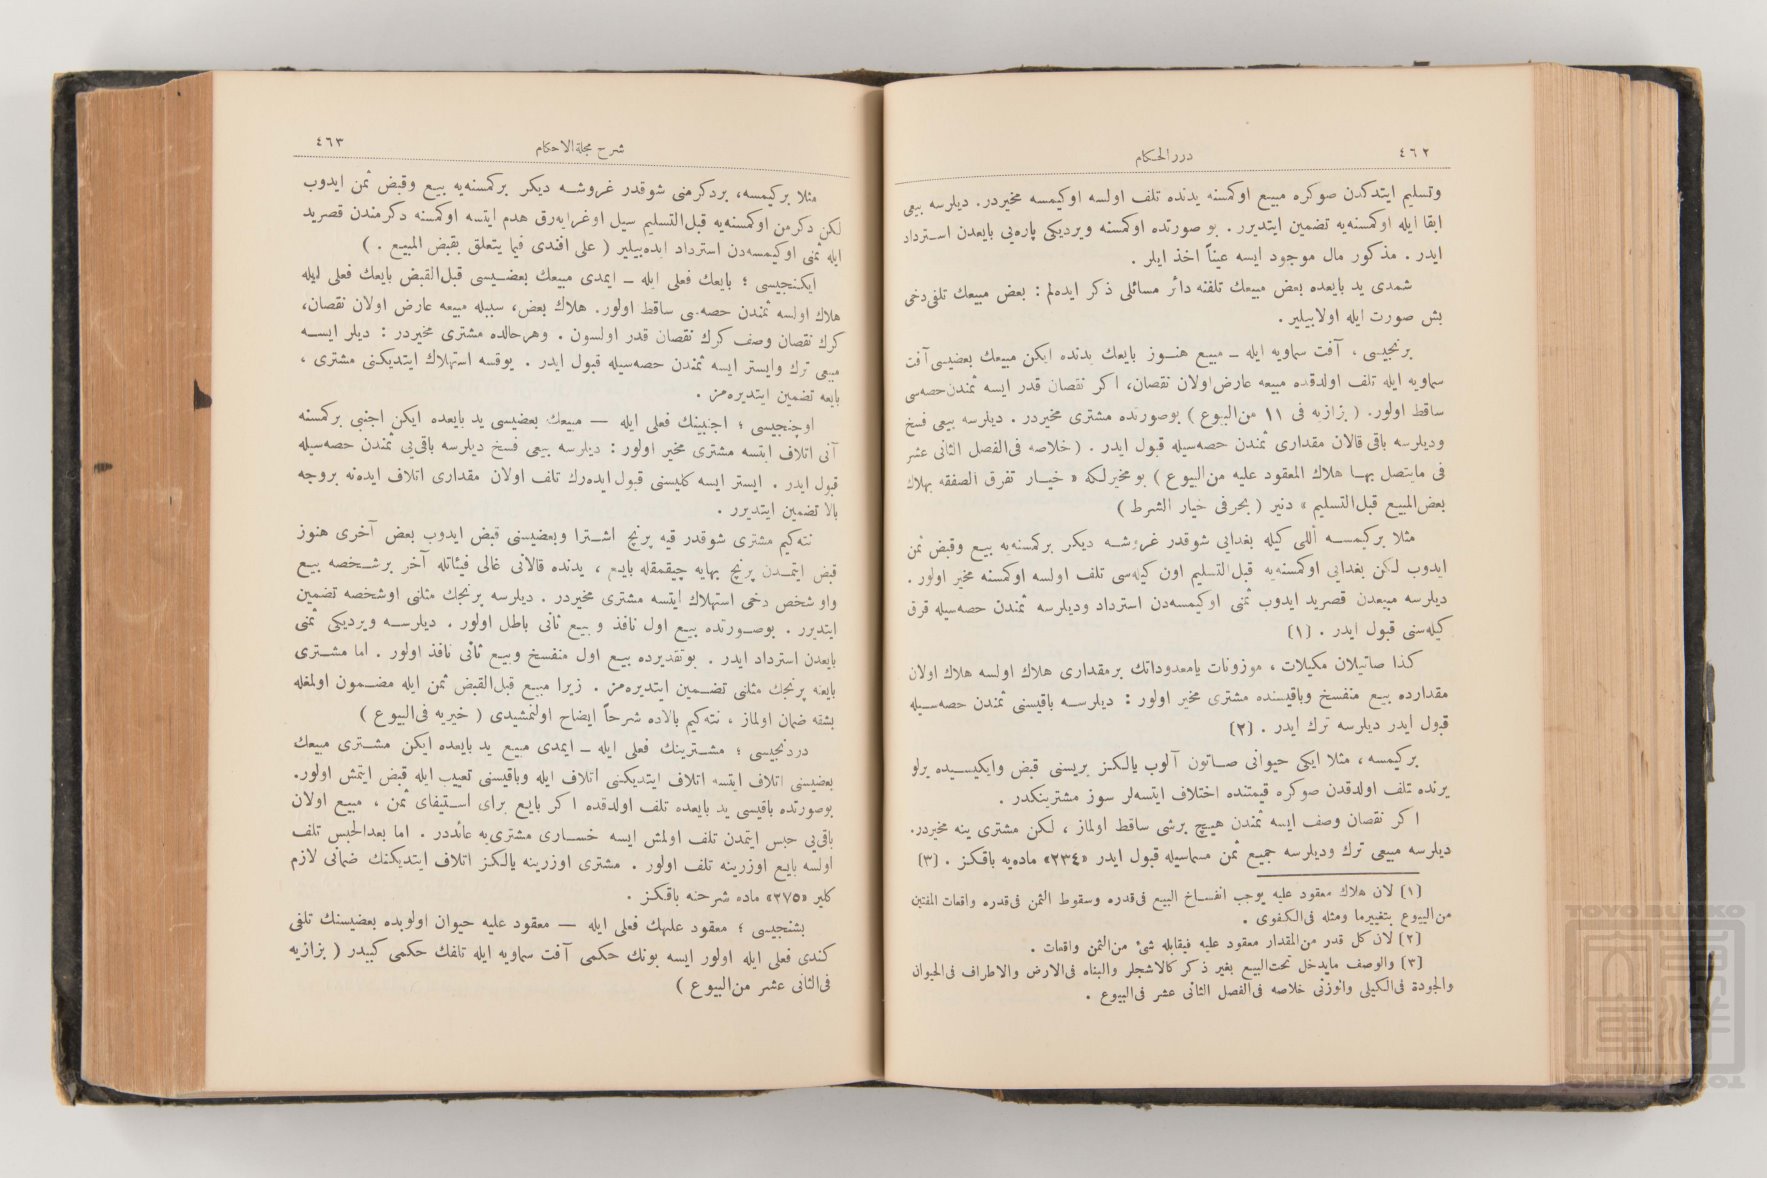 ٤٦٢
دررالحكام
وتسليم ايتدكدن صوكره مبيع اوكمسنه يدنده تلف اولسه اوكيمسه مخيردر. ديلرسه بيعى
ابقا ايله اوكمسنه‌يه تضمين ايتديرر . بو صورتده اوكمسنه ويرديكى پاره‌يى بايعدن استرداد
ايدر . مذكور مال موجود ايسه عيناً اخذ ايلر .
شمدى يد بايعده بعض مبيعك تلفنه دائر مسائلى ذكر ايده‌لم : بعض مبيعك تلفى دخى
بش صورت ايله اولابيلير .
برنجيسى ، آفت سماويه ايله ــ مبيع هنوز بايعك يدنده ايكن مبيعك بعضيسى آفت
سماويه ايله تلف اولدقده مبيعه عارض اولان نقصان، اكر نقصان قدر ايسه ثمندن حصه‌سى
ساقط اولور. ( بزازيه فى ١١ من‌البيوع ) بوصورتده مشترى مخيردر . ديلرسه بيعى فسخ
وديلرسه باقى قالان مقدارى ثمندن حصه‌سيله قبول ايدر . ( خلاصه فى‌الفصل الثانى عشر
فى مايتصل بها هلاك المعقود عليه من‌البيوع ) بو مخيرلكه « خيار تفرق الصفقه بهلاك
بعض‌المبيع قبل‌التسليم » دنير ( بحر فى خيار الشرط )
مثلا بركيمسه اللى كيله بغدايى شوقدر غروشه ديكر بركمسنه‌يه بيع وقبض ثمن
ايدوب لكن بغدايى اوكمسنه‌يه قبل‌التسليم اون كيله‌سى تلف اولسه اوكمسنه مخير اولور .
ديلرسه مبيعدن قصريد ايدوب ثمنى اوكيمسه‌دن استرداد وديلرسه ثمندن حصه‌سيله قرق
كيله‌سنى قبول ايدر . [١]
كذا صاتيلان مكيلات ، موزونات يامعدوداتك برمقدارى هلاك اولسه هلاك اولان
مقدارده بيع منفسخ وباقيسنده مشترى مخير اولور : ديلرسه باقيسنى ثمندن حصه‌سيله
قبول ايدر ديلرسه ترك ايدر . [٢]
بركيمسه ، مثلا ايكى حيوانى صاتون آلوب يالكز بريسنى قبض وايكيسيده يرلو
يرنده تلف اولدقدن صوكره قيمتنده اختلاف ايتسه‌لر سوز مشترينكدر .
اكر نقصان وصف ايسه ثمندن هيچ برشى ساقط اولماز ، لكن مشترى ينه مخيردر.
ديلرسه مبيعى ترك وديلرسه جميع ثمن مسماسيله قبول ايدر «٢٣٤» ماده‌يه باقكز . [٣]
[١] لان هلاك معقود عليه يوجب انفساخ البيع فى‌قدره وسقوط الثمن فى‌قدره واقعات المفتين
من‌البيوع بتغييرما ومثله فى‌الكفوى .
[٢] لان كل قدر من‌المقدار معقود عليه فيقابله شئ من‌الثمن واقعات .
[٣] والوصف مايدخل تحت‌البيع بغير ذكر كالاشجار والبناء فى‌الارض والاطراف فى‌الحيوان
والجودة فى‌الكيلى والوزنى خلاصه فى‌الفصل الثانى عشر فى‌البيوع .
٤٦٣
شرح مجلةالاحكام
مثلا بركيمسه، بردكرمنى شوقدر غروشه ديكر بركمسنه‌يه بيع وقبض ثمن ايدوب
لكن دكرمن اوكمسنه‌يه قبل‌التسليم سيل اوغرايه‌رق هدم ايتسه اوكمسنه دكرمندن قصريد
ايله ثمنى اوكيمسه‌دن استرداد ايده‌بيلير ( على افندى فيما يتعلق بقبض المبيع . )
ايكنجيسى ؛ بايعك فعلى ايله ــ ايمدى مبيعك بعضيسى قبل‌القبض بايعك فعلى ايله
هلاك اولسه ثمندن حصه‌سى ساقط اولور. هلاك بعض، سببله مبيعه عارض اولان نقصان،
كرك نقصان وصف كرك نقصان قدر اولسون . وهرحالده مشترى مخيردر : ديلر ايسه
مبيعى ترك وايستر ايسه ثمندن حصه‌سيله قبول ايدر . يوقسه استهلاك ايتديكنى مشترى ،
بايعه تضمين ايتديره‌مز .
اوچنجيسى ؛ اجنبينك فعلى ايله — مبيعك بعضيسى يد بايعده ايكن اجنبى بركمسنه
آنى اتلاف ايتسه مشترى مخير اولور : ديلرسه بيعى فسخ ديلرسه باقى‌يى ثمندن حصه‌سيله
قبول ايدر . ايستر ايسه كليسنى قبول ايده‌رك تلف اولان مقدارى اتلاف ايدنه بروجه
بالا تضمين ايتديرر .
نته‌كيم مشترى شوقدر قيه پرنچ اشترا وبعضيسنى قبض ايدوب بعض آخرى هنوز
قبض ايتمدن پرنچ بهايه چيقمقله بايع ، يدنده قالانى غالى فيئاتله آخر برشخصه بيع
واو شخص دخى استهلاك ايتسه مشترى مخيردر . ديلرسه پرنجك مثلنى اوشخصه تضمين
ايتديرر . بوصورتده بيع اول نافذ و بيع ثانى باطل اولور . ديلرسه ويرديكى ثمنى
بايعدن استرداد ايدر . بوتقديرده بيع اول منفسخ وبيع ثانى نافذ اولور . اما مشترى
بايعنه پرنجك مثلنى تضمين ايتديره‌مز . زيرا مبيع قبل‌القبض ثمن ايله مضمون اولمغله
بشقه ضمان اولماز ، نته‌كيم بالاده شرحاً ايضاح اولنمشيدى ( خيريه فى‌البيوع )
دردنجيسى ؛ مشترينك فعلى ايله ــ ايمدى مبيع يد بايعده ايكن مشترى مبيعك
بعضيسنى اتلاف ايتسه اتلاف ايتديكنى اتلاف ايله وباقيسنى تعييب ايله قبض ايتمش اولور.
بوصورتده باقيسى يد بايعده تلف اولدقده اكر بايع براى استيفاى ثمن ، مبيع اولان
باقى‌يى حبس ايتمدن تلف اولمش ايسه خسارى مشترى‌يه عائددر . اما بعدالحبس تلف
اولسه بايع اوزرينه تلف اولور . مشترى اوزرينه يالكز اتلاف ايتديكنك ضمانى لازم
كلير «٣٧٥» ماده شرحنه باقكز .
بشنجيسى ؛ معقود عليهك فعلى ايله — معقود عليه حيوان اولوبده بعضيسنك تلفى
كندى فعلى ايله اولور ايسه بونك حكمى آفت سماويه ايله تلفك حكمى كبيدر ( بزازيه
فى‌الثانى عشر من‌البيوع )
TOYO BUNKO